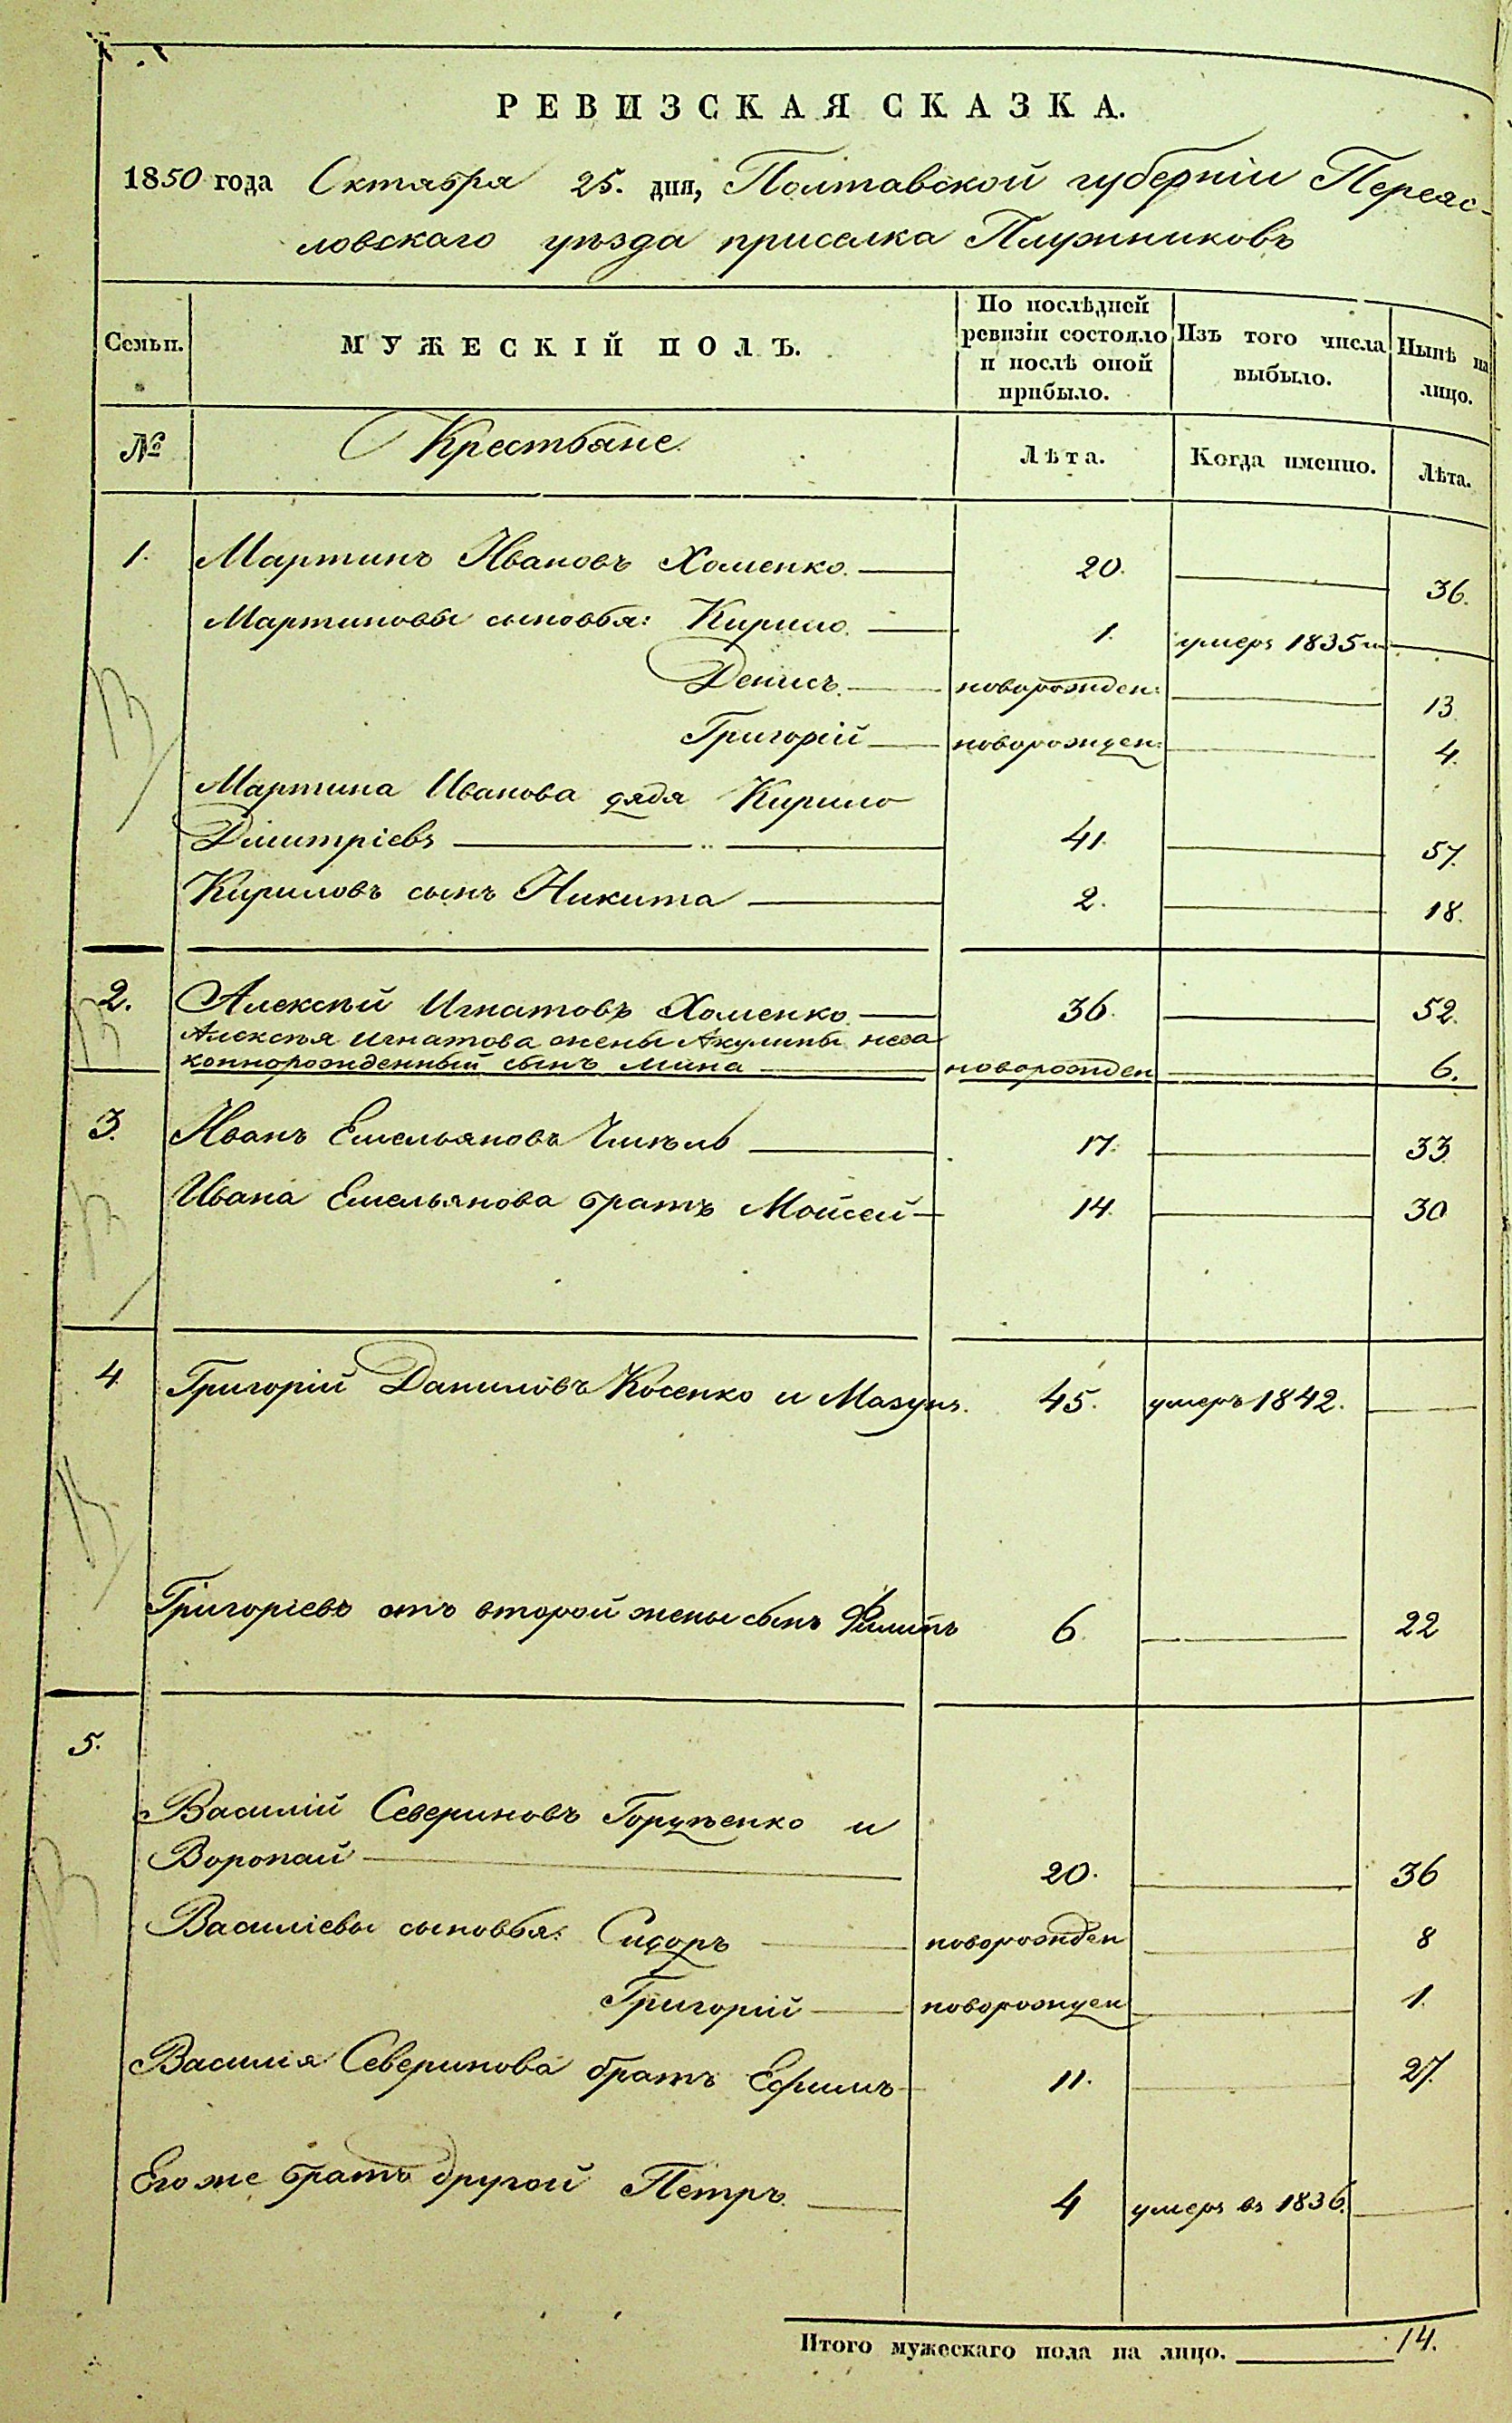 РЕВИЗСКАЯ СКАЗКА.
1850 года Октября 25. дня, Полтавской губерніи Переяс-
ловскаго уѣзда приселка Плужниковъ
Семьи.
МУЖЕСКІЙ ПОЛЪ.
По послѣдней ревизіи состояло и послѣ оной прибыло.
Изъ того числа выбыло.
Нынѣ на лицо.
№ Крестьяне Лѣта. Когда именно. Лѣта.
1. Мартинъ Ивановъ Хоменко. 20. 36.
Мартиновы сыновья: Кирило. 1. умеръ 1835
Денисъ. новорожден: 13
Григорій новорожден: 4.
Мартина Иванова дядя Кирило
Дмитріевъ 41. 57.
Кириловъ сынъ Никита 2. 18.
2. Алексѣй Игнатовъ Хоменко 36. 52.
Алексѣя Игнатова жены Акулины неза
коннорожденный сынъ Мина новорожден 6.
3. Иванъ Емельяновъ 17. 33.
Ивана Емельянова братъ Мойсей 14. 30
4 Григорій Даниловъ Косенко и Мазунъ. 45. умеръ 1842.
Григоріевъ отъ второй жены сынъ Филипъ 6. 22
5.
Василій Севериновъ и
Воропай 20. 36
Василіевы сыновья: Сидоръ новорожден 8
Григорій новорожден 1.
Василія Северинова братъ Ефимъ 11. 27.
Его же братъ другой Петръ. 4 умеръ въ 1836.
Итого мужескаго пола на лицо. 14.